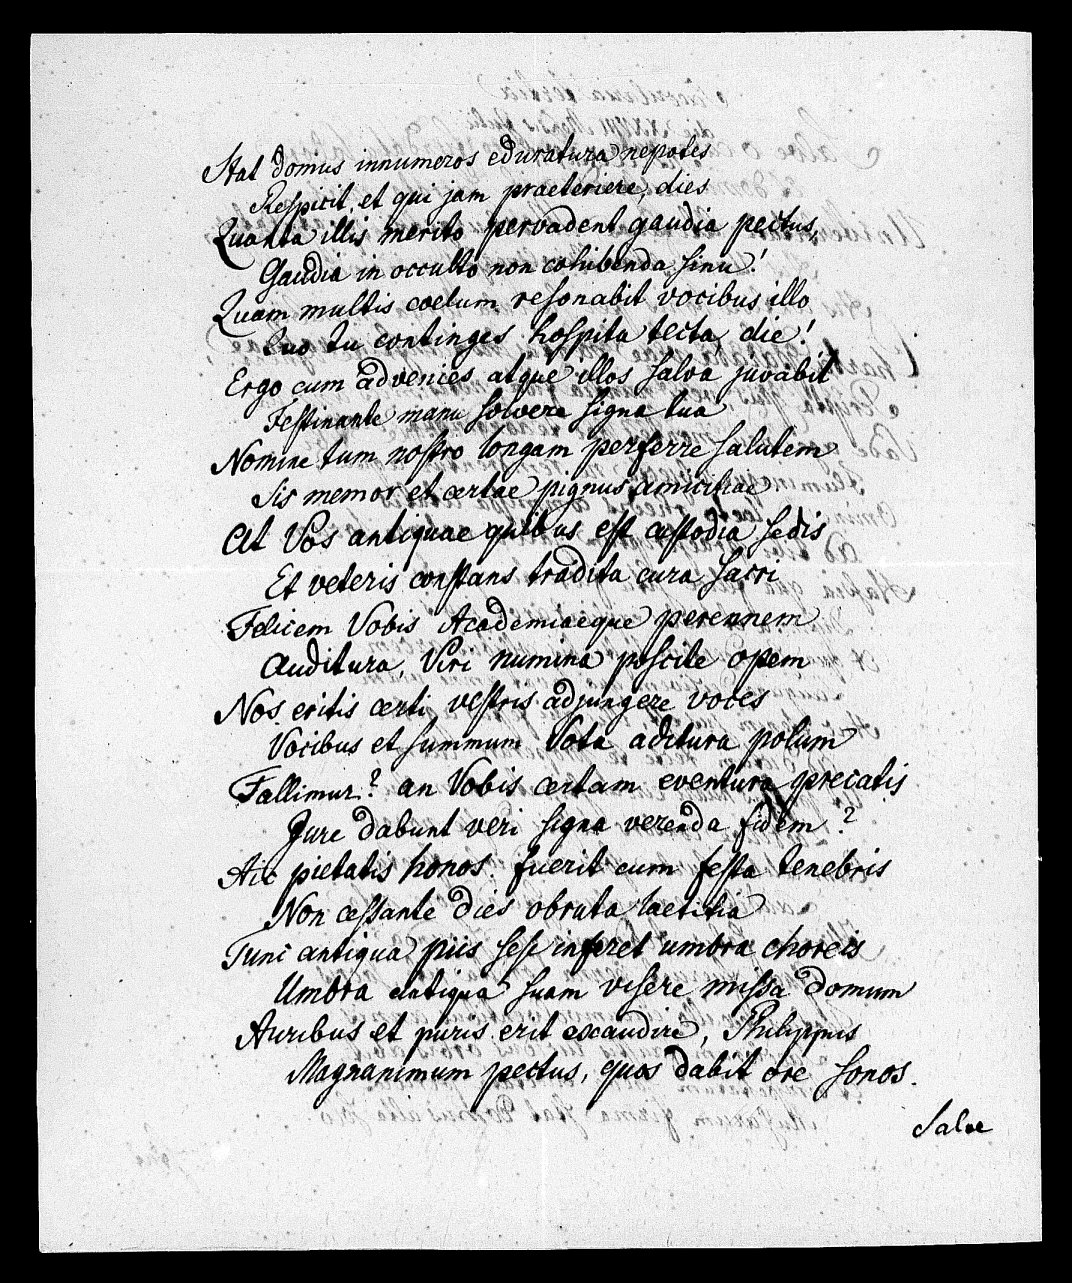 Stat domus innumeros eduratura nepotes
Respicit, et qui jam praeteriere, dies
Quanta illis merito pervadent gaudia pectus,
Gaudia in occulto non cohibenda sinu!
Quam multis coetum resonabit vocibus illo
Quo tu continges hospita tecta die!
Ergo cum advenies atque illos salva juvabit
Festinante manu solvere signa tua
Nomine tum nostro longam perferre salutem
Sis memor et certae pignus amicitiae
At Vos antiquae quibus est custodia sedis
Et veteris constans tradita cura sacri
Felicem Vobis Academiaeque perennem
Auditura, Viri numina poscite opem
Nos eritis certi vestris adjungere voces
Vocibus et summum Vota aditura polum
Fallimur? an Vobis certam eventura precatis
Jure dabunt veri signa verenda fidem?
Hic pietatis honos fuerit cum festa tenebris
Non cessante dies obruta laetitia
Tunc antiqua piis sese inferet umbra choreis
Umbra antiqua suam visere missa domum
Auribus et puris erit exaudire, Philippus
Magnanimum pectus, quos dabit ore sonos.
Salve